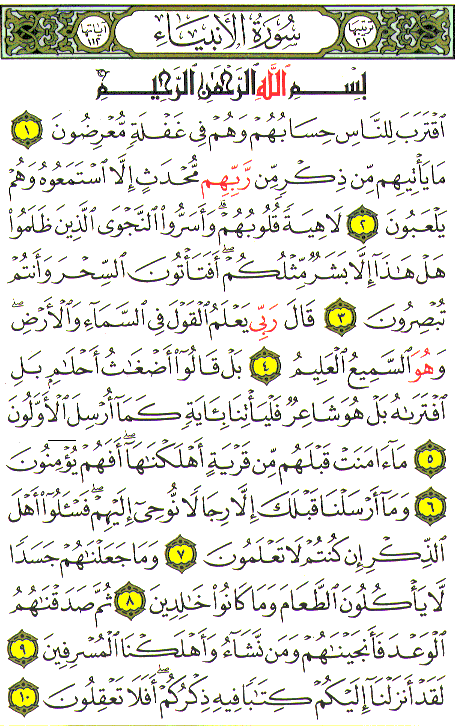 ترتيبها ٢١ سُورَةُ الأَنبِيَاءِ آياتها ١١٢
بِسْمِ اللَّهِ الرَّحْمَٰنِ الرَّحِيمِ
ٱقْتَرَبَ لِلنَّاسِ حِسَابُهُمْ وَهُمْ فِى غَفْلَةٍ مُّعْرِضُونَ ١
مَا يَأْتِيهِم مِّن ذِكْرٍ مِّن رَّبِّهِم مُّحْدَثٍ إِلَّا ٱسْتَمَعُوهُ وَهُمْ
يَلْعَبُونَ ٢ لَاهِيَةً قُلُوبُهُمْ ۗ وَأَسَرُّوا۟ ٱلنَّجْوَى ٱلَّذِينَ ظَلَمُوا۟
هَلْ هَٰذَآ إِلَّا بَشَرٌ مِّثْلُكُمْ ۖ أَفَتَأْتُونَ ٱلسِّحْرَ وَأَنتُمْ
تُبْصِرُونَ ٣ قَالَ رَبِّى يَعْلَمُ ٱلْقَوْلَ فِى ٱلسَّمَآءِ وَٱلْأَرْضِ ۖ
وَهُوَ ٱلسَّمِيعُ ٱلْعَلِيمُ ٤ بَلْ قَالُوٓا۟ أَضْغَٰثُ أَحْلَٰمٍۭ بَلِ
ٱفْتَرَىٰهُ بَلْ هُوَ شَاعِرٌ فَلْيَأْتِنَا بِـَٔايَةٍ كَمَآ أُرْسِلَ ٱلْأَوَّلُونَ
٥ مَآ ءَامَنَتْ قَبْلَهُم مِّن قَرْيَةٍ أَهْلَكْنَٰهَآ ۖ أَفَهُمْ يُؤْمِنُونَ
٦ وَمَآ أَرْسَلْنَا قَبْلَكَ إِلَّا رِجَالًا نُّوحِىٓ إِلَيْهِمْ ۖ فَسْـَٔلُوٓا۟ أَهْلَ
ٱلذِّكْرِ إِن كُنتُمْ لَا تَعْلَمُونَ ٧ وَمَا جَعَلْنَٰهُمْ جَسَدًا
لَّا يَأْكُلُونَ ٱلطَّعَامَ وَمَا كَانُوا۟ خَٰلِدِينَ ٨ ثُمَّ صَدَقْنَٰهُمُ
ٱلْوَعْدَ فَأَنجَيْنَٰهُمْ وَمَن نَّشَآءُ وَأَهْلَكْنَا ٱلْمُسْرِفِينَ ٩
لَقَدْ أَنزَلْنَآ إِلَيْكُمْ كِتَٰبًا فِيهِ ذِكْرُكُمْ ۖ أَفَلَا تَعْقِلُونَ ١٠